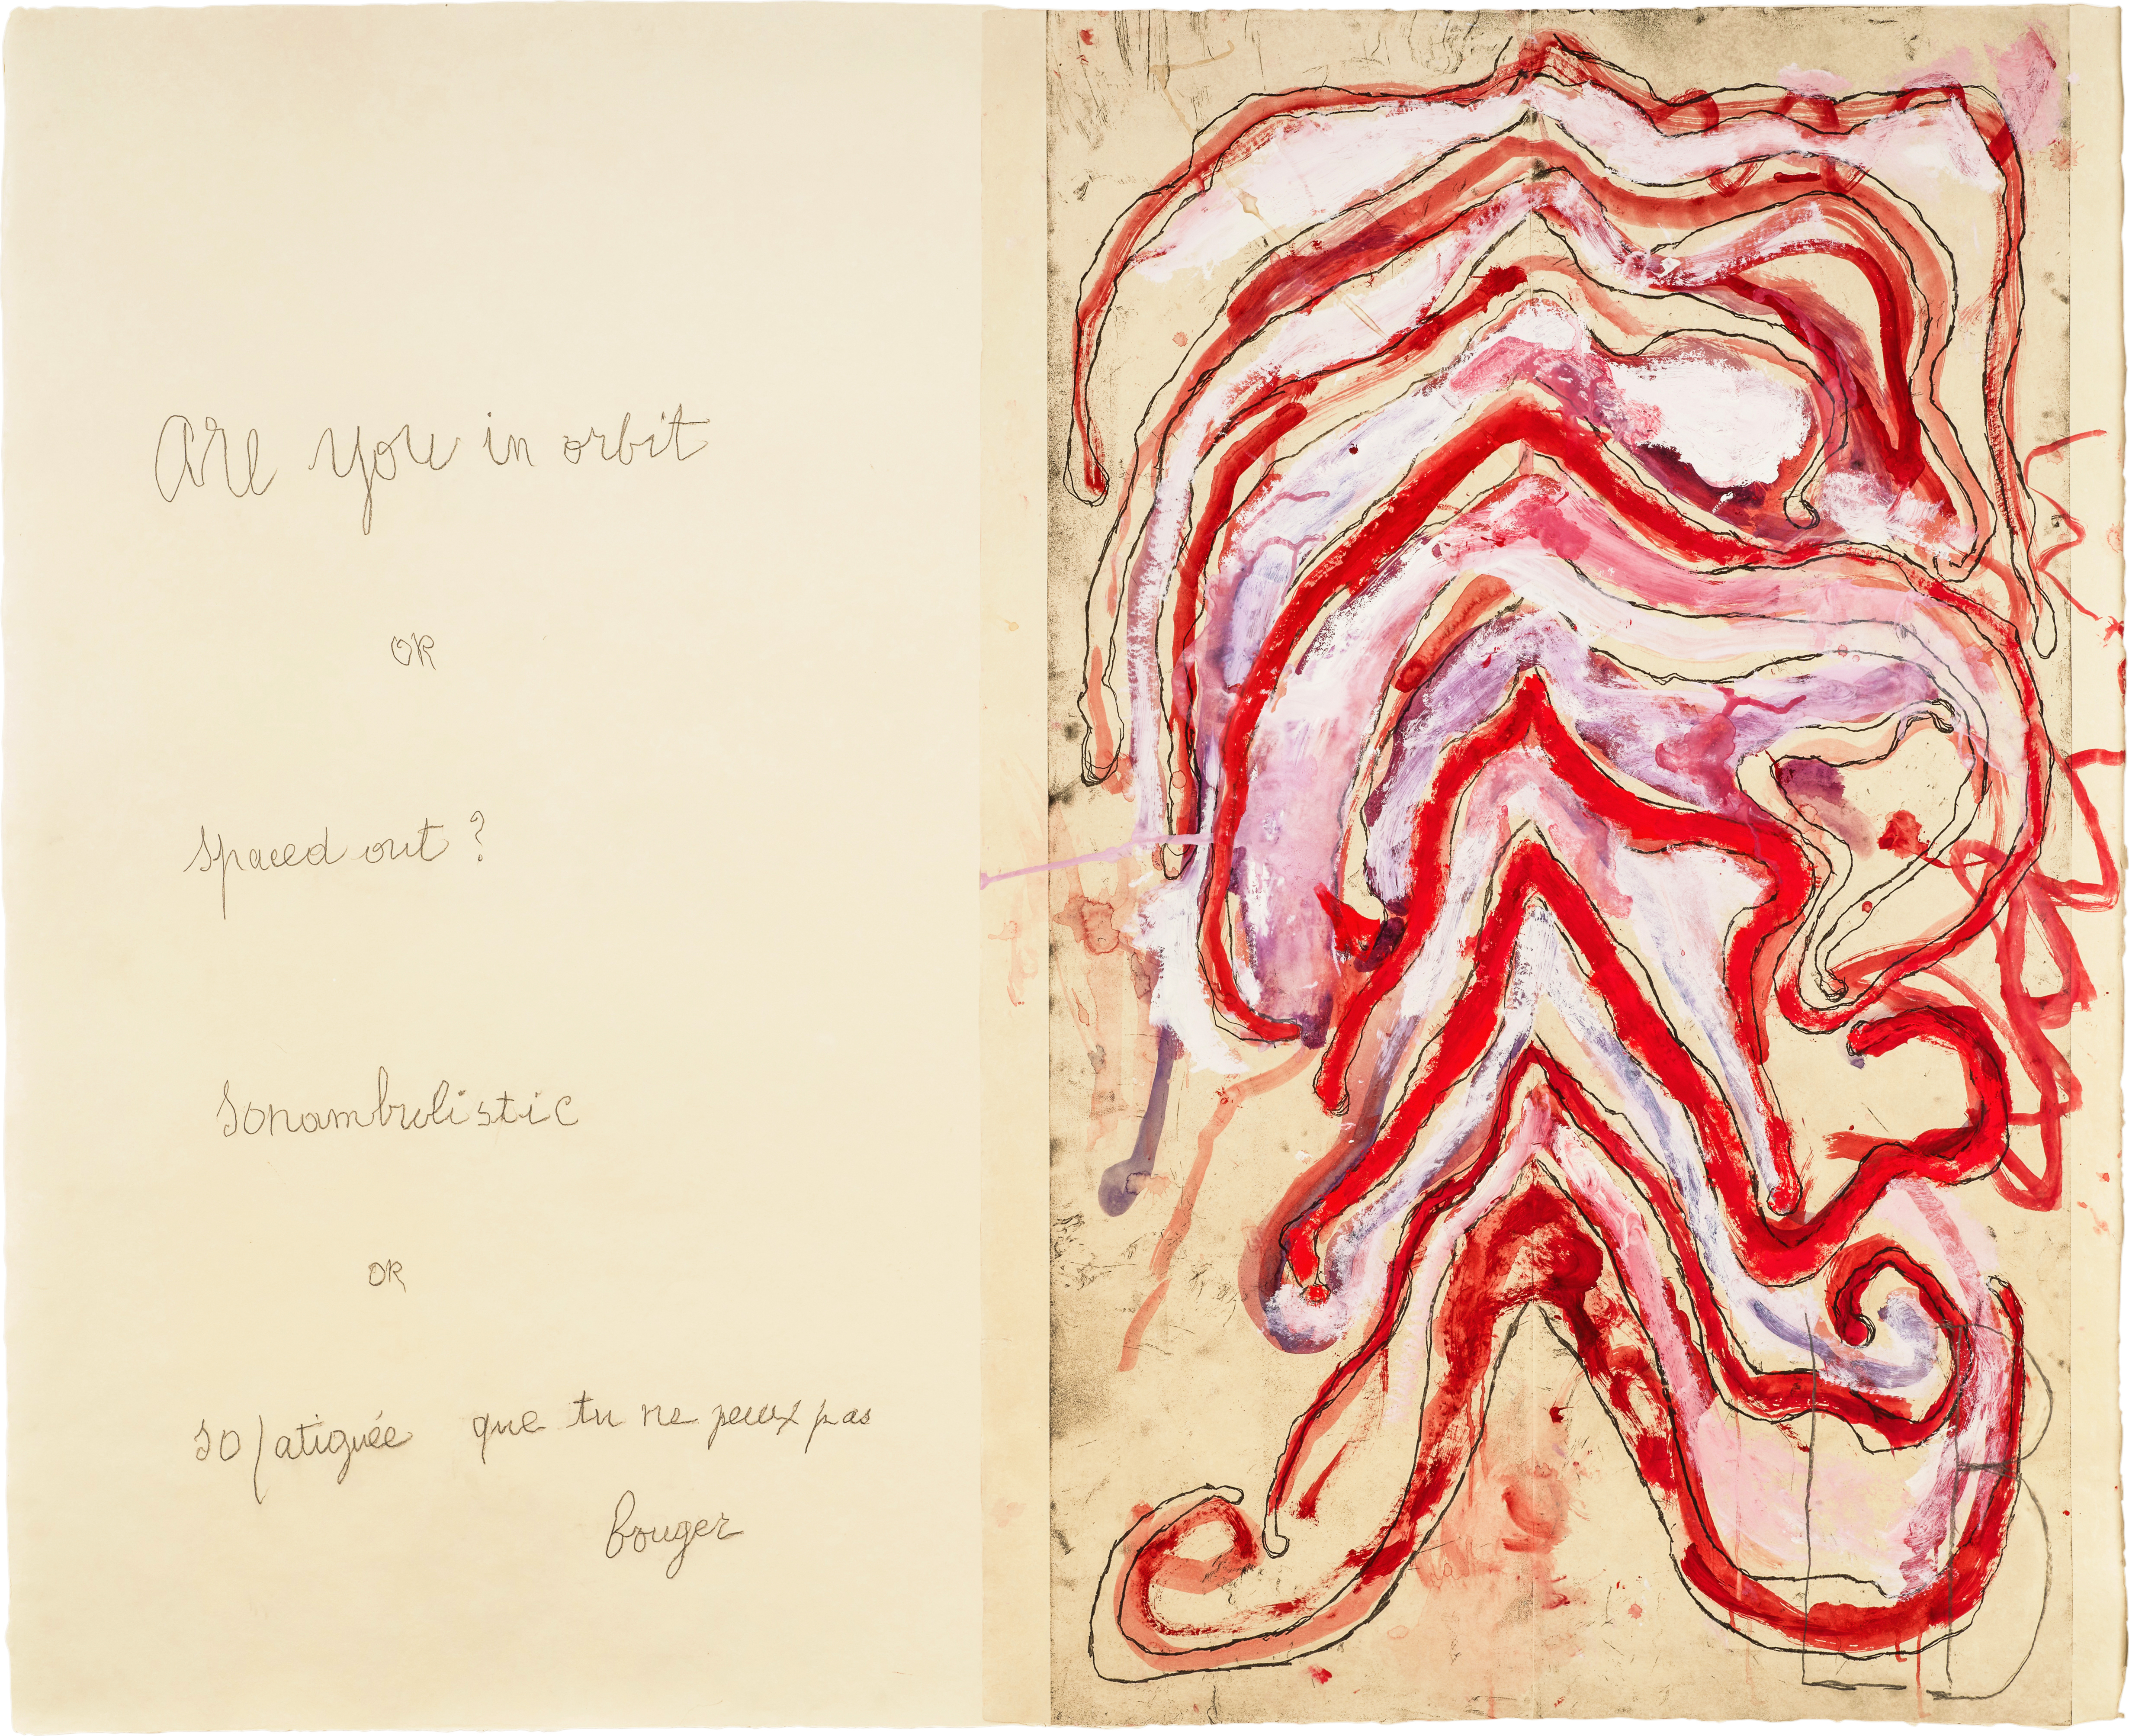 are you in orbit
or
spaced out ?
sonambulistic
or
so fatiguée que tu ne peux pas
bouger